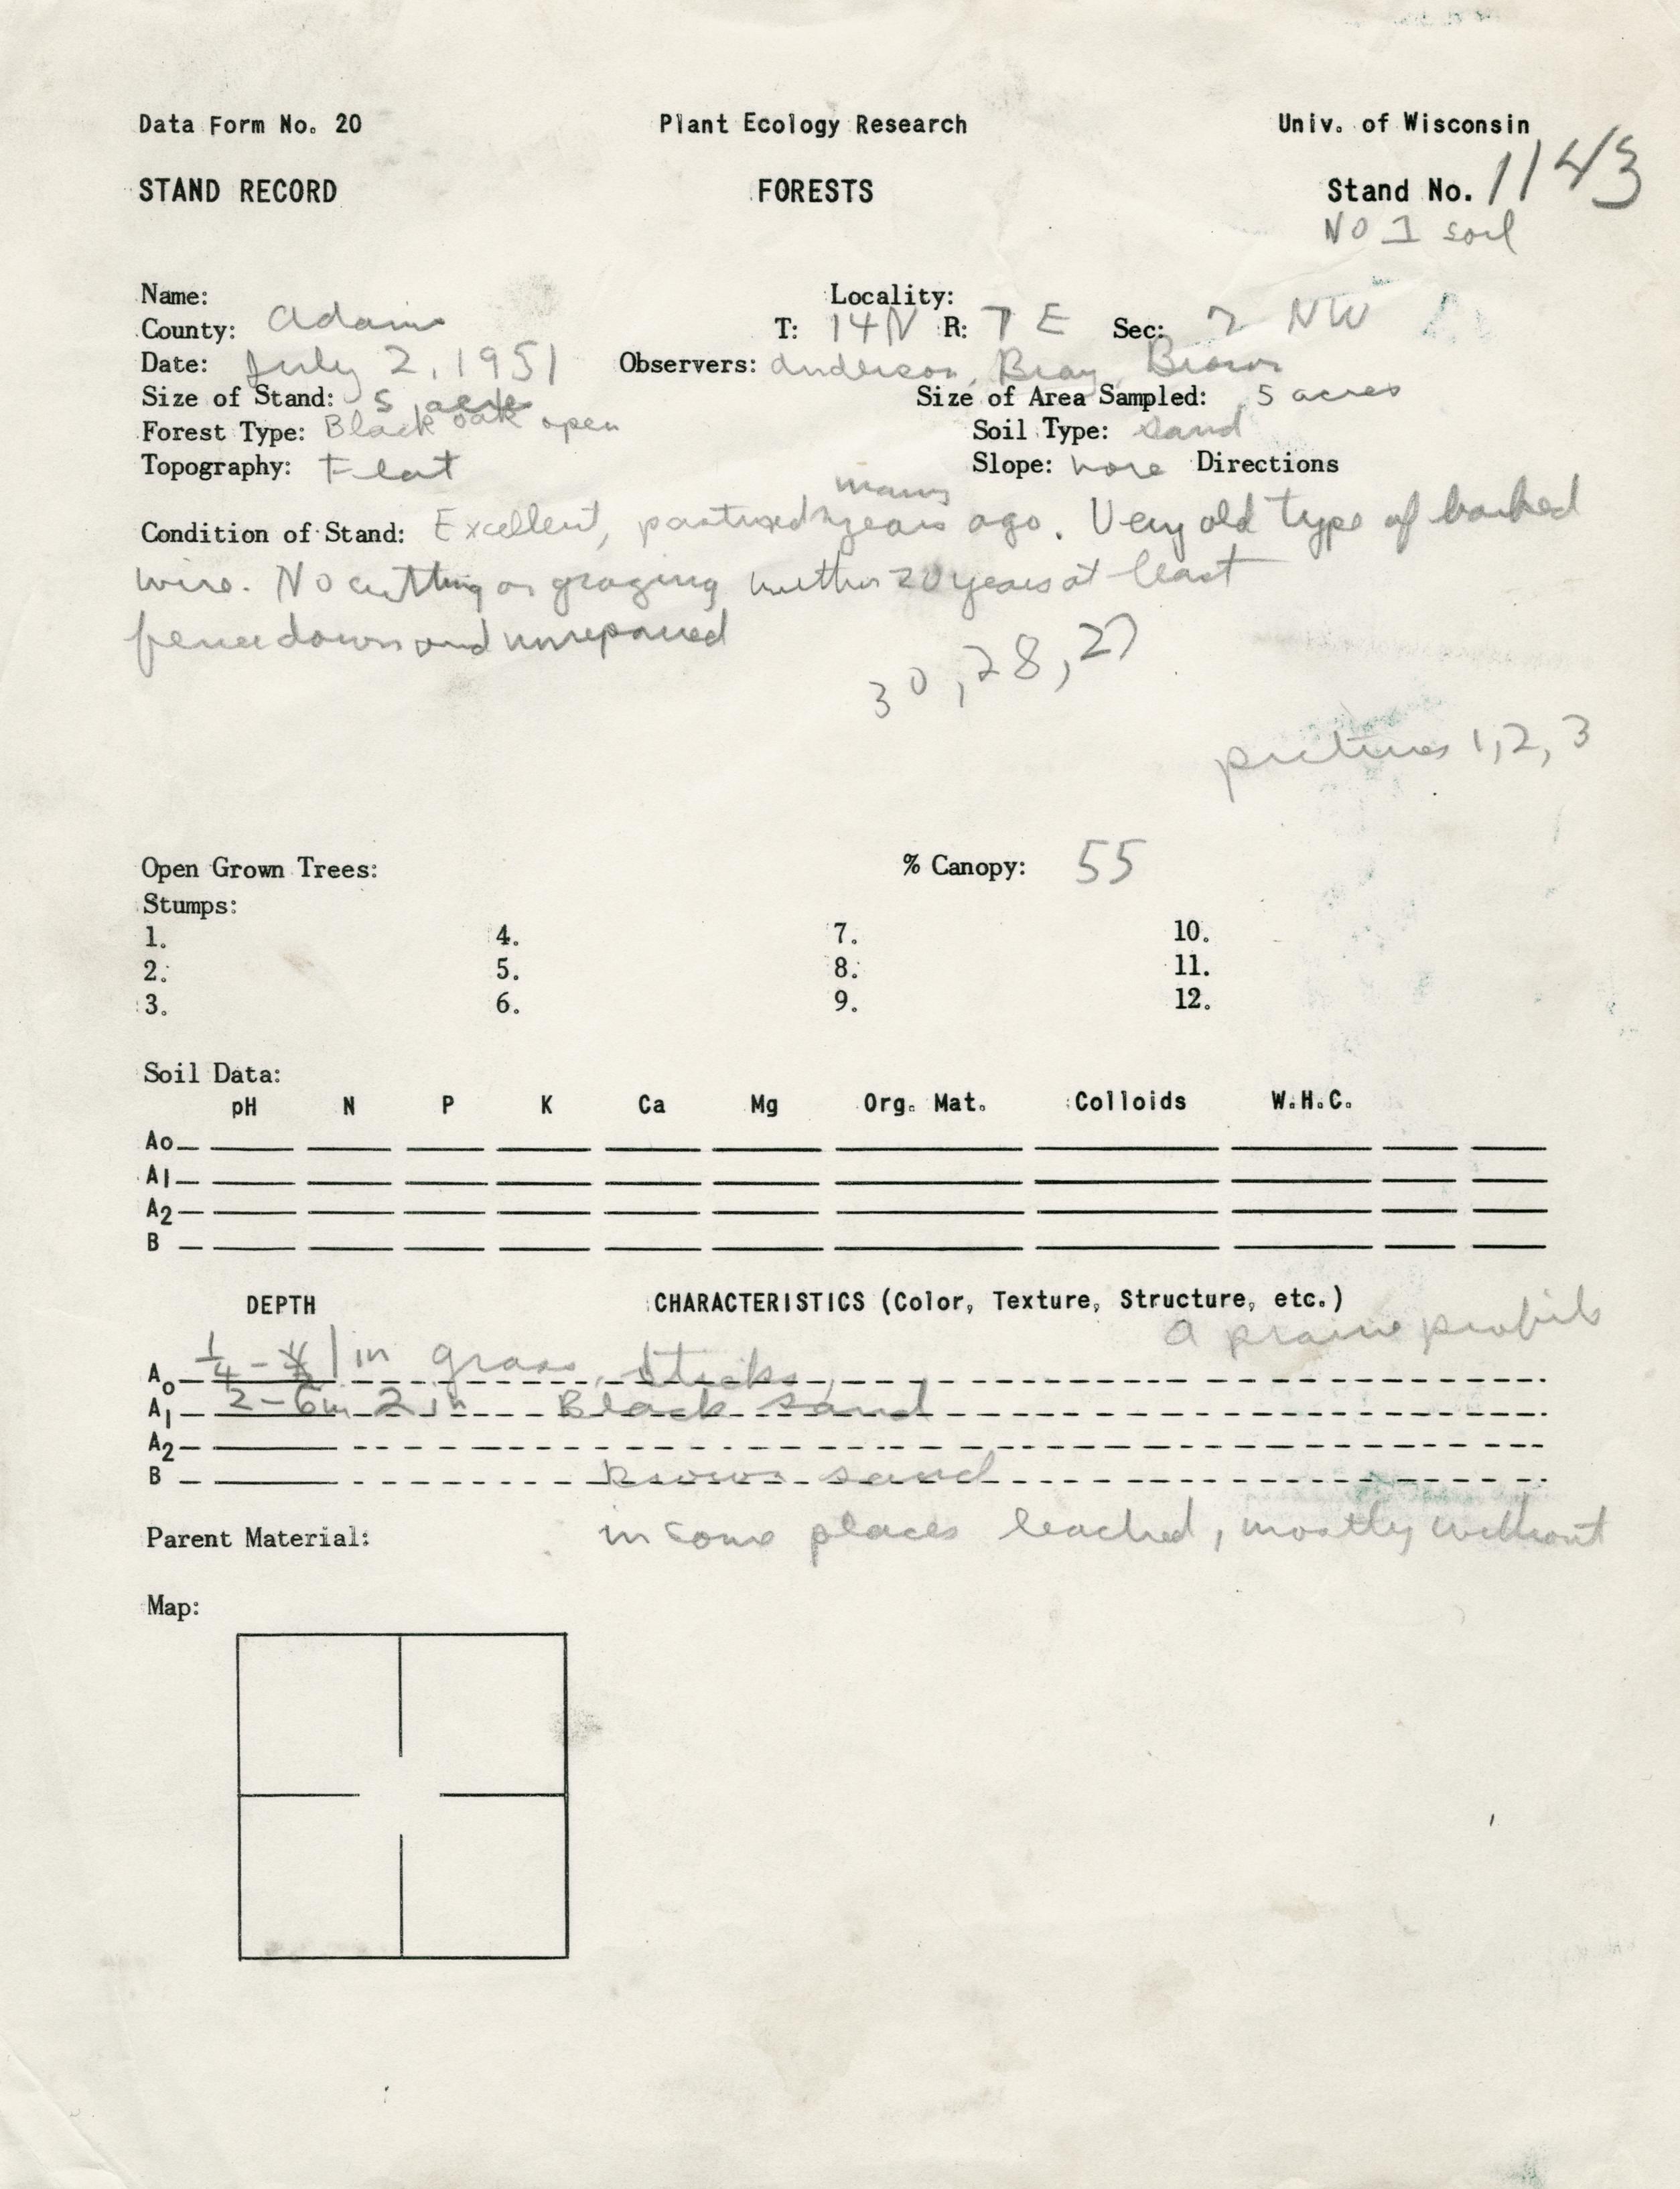 Data Form No. 20 Plant Ecology Research Univ. of Wisconsin
STAND RECORD FORESTS Stand No. 1143
No 1 soil
Name: Locality:
County: Adams T: 14N R: 7 E Sec: 7 NW
Date: July 2, 1951 Observers: Anderson, Bray, Brown
Size of Stand: 5 acres Size of Area Sampled: 5 acres
Forest Type: Black oak open Soil Type: sand
Topography: Flat Slope: none Directions
many
Condition of Stand: Excellent, pastured years ago. Very old type of barbed
wire. No cutting or grazing within 20 years at least
fence down and unrepaired
30, 28, 27
pictures 1, 2, 3
Open Grown Trees: % Canopy: 55
Stumps:
1. 4. 7. 10.
2. 5. 8. 11.
3. 6. 9. 12.
Soil Data:
pH N P K Ca Mg Org. Mat. Colloids W.H.C.
Ao
A1
A2
B
DEPTH CHARACTERISTICS (Color, Texture, Structure, etc.)
a prairie profile
Ao 1/4 - 1 in grass, sticks,
A1 2-6in 2 in Black sand
A2
B Brown sand
Parent Material: in some places leached, mostly without
Map: